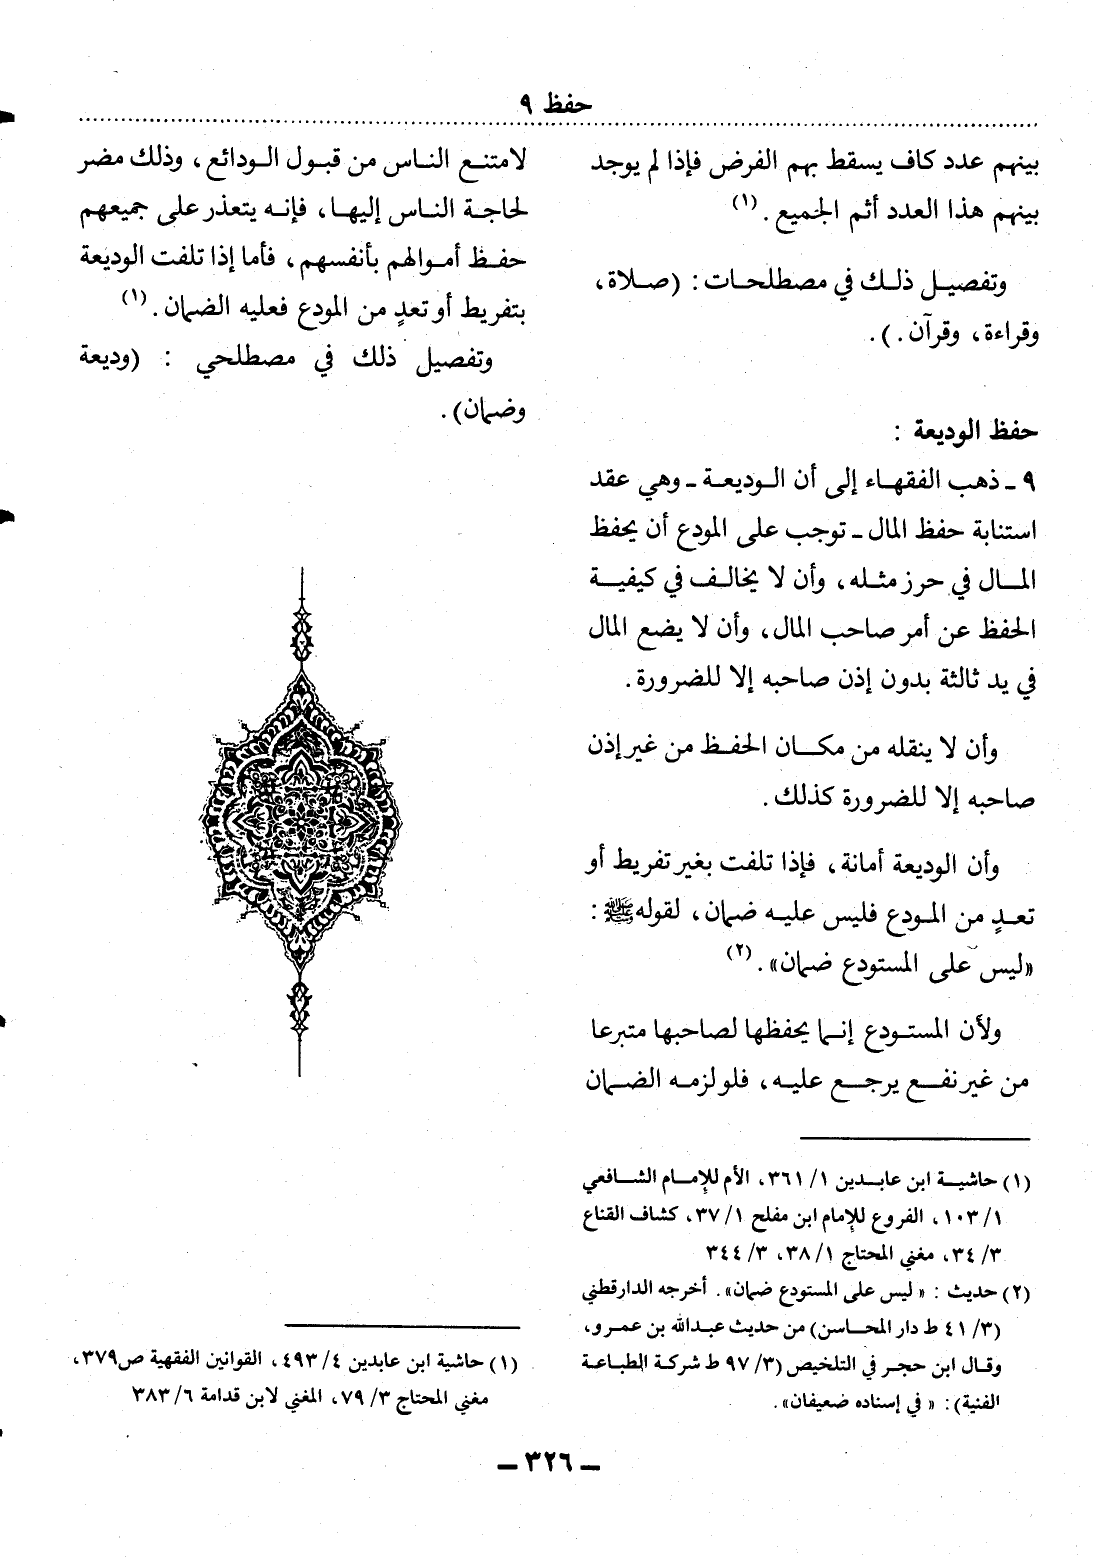 حفظ ٩
بينهم عدد كاف يسقط بهم الفرض فإذا لم يوجد
بينهم هذا العدد أثم الجميع . (١)
وتفصيل ذلك في مصطلحات : (صلاة ،
وقراءة ، وقرآن . ) .
حفظ الوديعة :
٩ ـ ذهب الفقهاء إلى أن الوديعة ـ وهي عقد
استنابة حفظ المال ـ توجب على المودع أن يحفظ
المال في حرز مثله ، وأن لا يخالف في كيفية
الحفظ عن أمر صاحب المال ، وأن لا يضع المال
في يد ثالثة بدون إذن صاحبه إلا للضرورة .
وأن لا ينقله من مكان الحفظ من غير إذن
صاحبه إلا للضرورة كذلك .
وأن الوديعة أمانة ، فإذا تلفت بغير تفريط أو
تعدٍ من المودع فليس عليه ضمان ، لقوله ﷺ :
«ليس على المستودع ضمان» . (٢)
ولأن المستودع إنما يحفظها لصاحبها متبرعا
من غير نفع يرجع عليه ، فلو لزمه الضمان
(١) حاشية ابن عابدين ١/ ٣٦١ ، الأم للإمام الشافعي
١/ ١٠٣ ، الفروع للإمام ابن مفلح ١/ ٣٧ ، كشاف القناع
٣/ ٣٤ ، مغني المحتاج ١/ ٣٨ ، ٣/ ٣٤٤
(٢) حديث : « ليس على المستودع ضمان» . أخرجه الدارقطني
(٣/ ٤١ ط دار المحاسن) من حديث عبدالله بن عمرو ،
وقال ابن حجر في التلخيص (٣/ ٩٧ ط شركة الطباعة
الفنية) : « في إسناده ضعيفان» .
لامتنع الناس من قبول الودائع ، وذلك مضر
لحاجة الناس إليها ، فإنه يتعذر على جميعهم
حفظ أموالهم بأنفسهم ، فأما إذا تلفت الوديعة
بتفريط أو تعدٍ من المودع فعليه الضمان . (١)
وتفصيل ذلك في مصطلحي : (وديعة
وضمان) .
(١) حاشية ابن عابدين ٤/ ٤٩٣ ، القوانين الفقهية ص٣٧٩ ،
مغني المحتاج ٣/ ٧٩ ، المغني لابن قدامة ٦/ ٣٨٣
ـ ٣٢٦ ـ